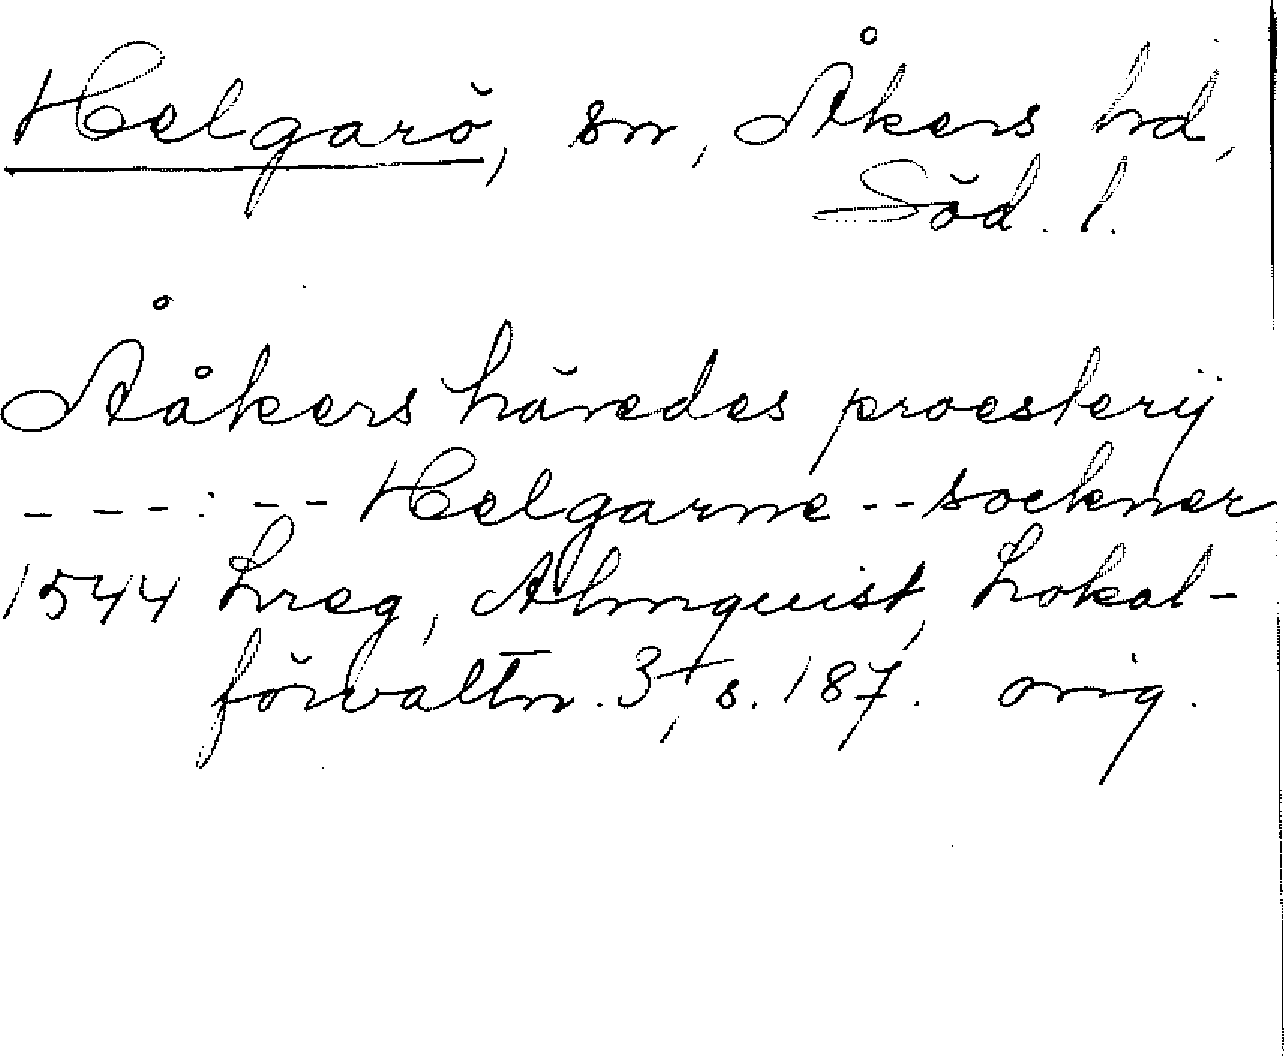 Helgarö, sn, Åkers hd,
Söd. l.
Ååkers häredes proesterij
- - - : - - Helgarne - - sockner
1544 Lreg, Almquist, Lokal-
förvaltn. 3, s. 187. orig.